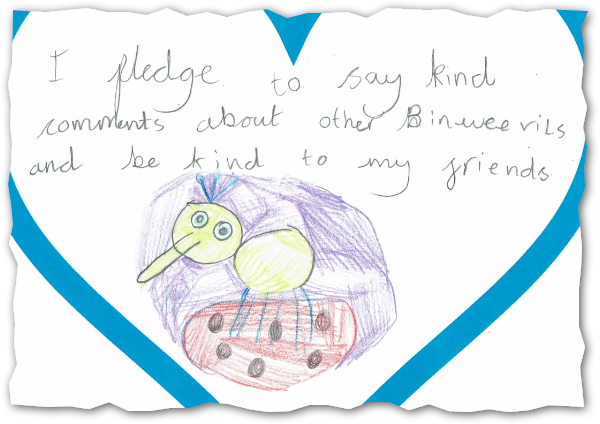 I pledge to say kind
comments about other Binweevils
and be kind to my friends